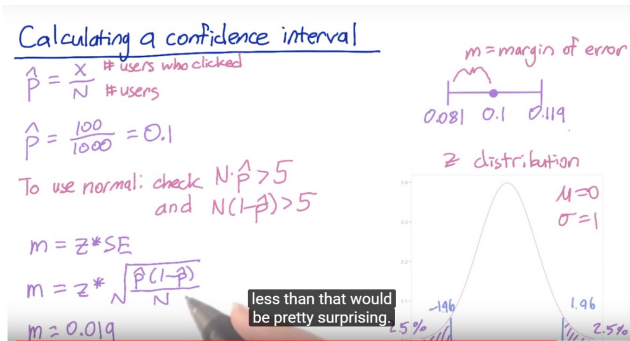 Calculating a confidence interval
p̂ = X/N # users who clicked
# users
p̂ = 100/1000 = 0.1
To use normal: check N·p̂ > 5
and N(1-p̂) > 5
m = z* SE
m = z* √(p̂(1-p̂)/N)
m = 0.019
m = margin of error
0.081 0.1 0.119
z distribution
μ=0
σ=1
-1.96 1.96
2.5% 2.5%
less than that would
be pretty surprising.